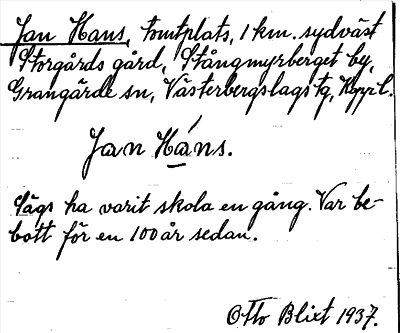 Jan Hans, tomtplats, 1 km. sydväst
Storgårds gård, Stångmyrberget by,
Grangärde sn, Västerbergslags tg, Kppl.
Jan Háns.
Sägs ha varit skola en gång. Var be-
bott för en 100 år sedan.
Otto Blixt 1937.